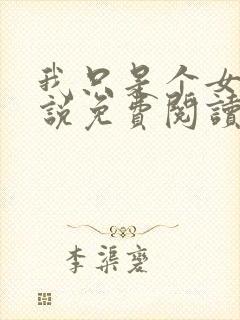 我只是个女
說免費閱讀
李渠薆